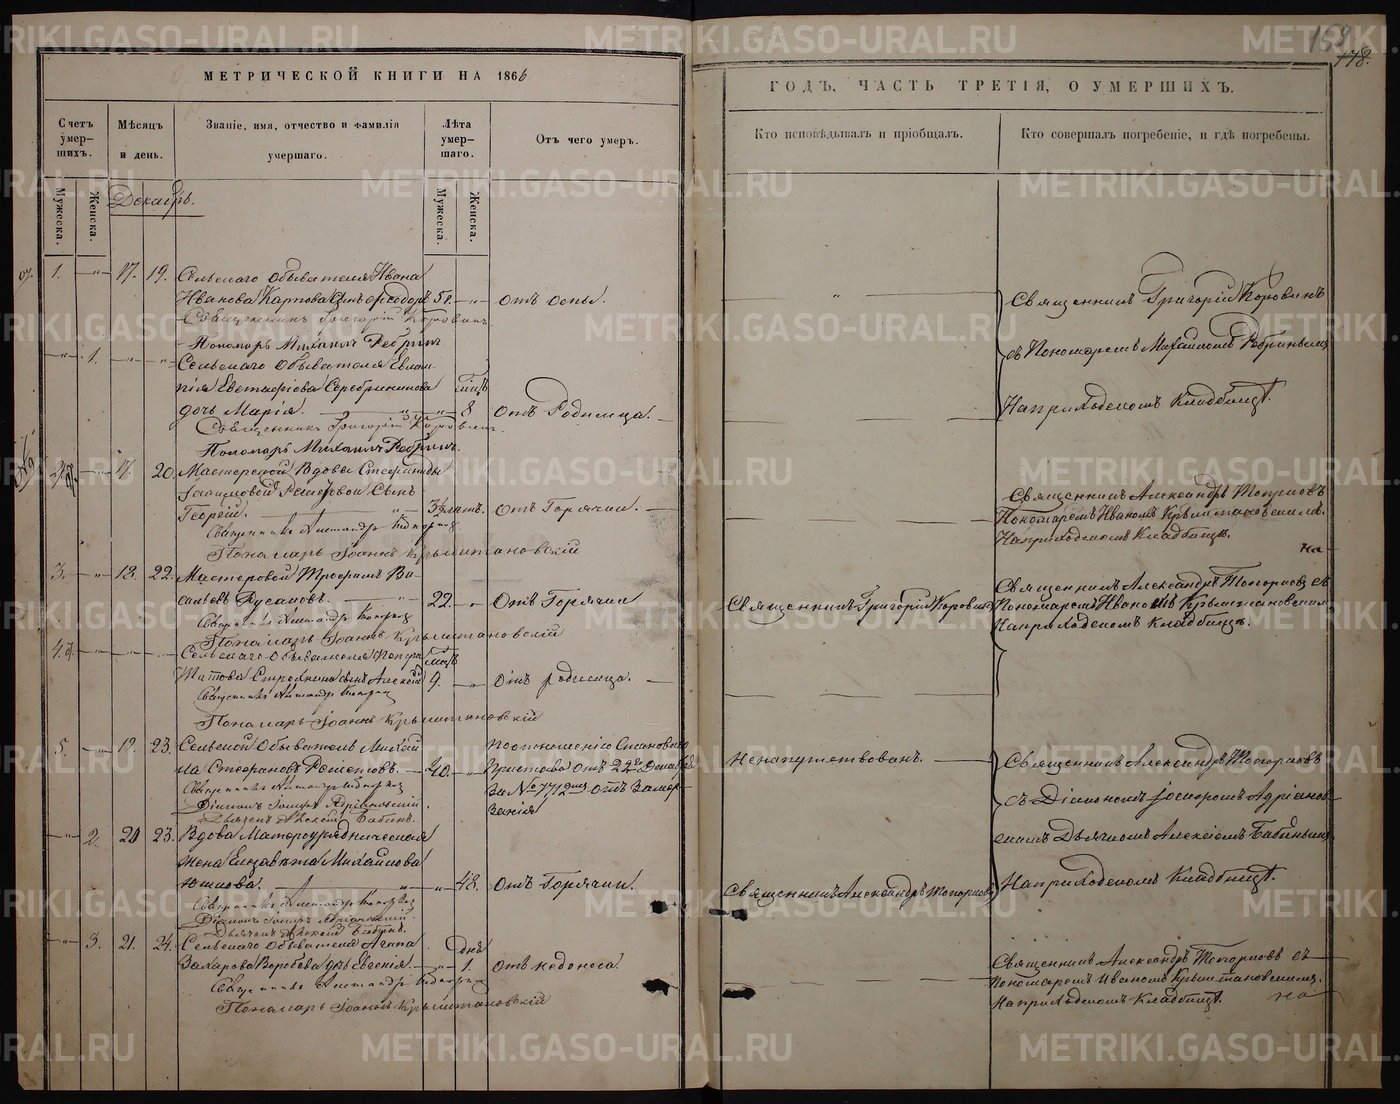 МЕТРИЧЕСКОЙ КНИГИ НА 1866
Счетъ умер-шихъ.
Мужеска.
Женска.
Мѣсяцъ и день.
Званіе, имя, отчество и фамилія умершаго.
Лѣта умер-шаго.
Мужеска.
Женска.
Отъ чего умеръ.
Декабрь.
1. 17. 19. Сельскаго обывателя Ивана
Иванова Карпова сынъ Феодоръ 5 отъ оспы.
Священникъ Григорій Коровинъ
Пономарь Михаилъ Ребринъ
1. Сельскаго обывателя Евлам-
пія Евстафіева Серебрянникова мѣц.
дочь Марія. 8 Отъ Родимца.
Священникъ Григорій Коровинъ
Пономарь Михаилъ Ребринъ.
2. 17. 20. Мастерской Вдовы Стефаниды
Решетовой Сынъ
Георгій. 3½ лѣтъ. Отъ Горячки.
Священникъ Александръ Топорковъ
Пономарь Іоаннъ Крыштановскій
3. 18. 22. Мастеровой Трофимъ Ва-
сильевъ Русаковъ. 22. Отъ Горячки
Священникъ Александръ Топорковъ
Пономарь Іоаннъ Крыштановскій
4. Сельскаго обывателя мѣцъ
сынъ Алексѣй 9. Отъ родимца.
Священникъ Александръ Топорковъ
Пономарь Іоаннъ Крыштановскій
5. 19. 23. Сельской Обыватель Михаи
ла Стефановъ Решетовъ. 40. По отношенію Становаго
Пристава отъ 22го Декабря
За № 7712мъ отъ Замер-
занія
Священникъ Александръ Топорковъ
Діаконъ Іосифъ Адріановскій
Дьячекъ Алексій Бабинъ.
2. 20 23. Вдова Мастероурядническая
жена Елизавета Михайлова
Юшкова. 48. Отъ Горячки.
Священникъ Александръ Топорковъ
Діаконъ Іосифъ Адріановскій
Дьячекъ Алексій Бабинъ.
3. 21. 24. Сельскаго обывателя Агапа днь
Захарова Воробьева дчь Евгенія 1. отъ недоноса.
Священникъ Александръ Топорковъ
Пономарь Іоаннъ Крыштановскій
159
178.
ГОДЪ, ЧАСТЬ ТРЕТІЯ, О УМЕРШИХЪ.
Кто исповѣдывалъ и пріобщалъ.
Кто совершалъ погребеніе, и гдѣ погребены.
Священникъ Григорій Коровинъ
съ Пономаремъ Михаиломъ Ребринымъ
На приходскомъ Кладбищѣ.
Священникъ Александръ Топорковъ
Пономаремъ Иваномъ Крыштановскимъ.
На приходскомъ Кладбищѣ.
на
Священникъ Григорій Коровинъ
Священникъ Александръ Топорковъ съ
Пономаремъ Иваномъ Крыштановскимъ
На приходскомъ Кладбищѣ.
Ненапутствованъ.
Священникъ Александръ Топорковъ
съ Діакономъ Іосифомъ Адріанов-
скимъ Дьячкомъ Алексіемъ Бабинымъ
На приходскомъ Кладбищѣ.
Священникъ Александръ Топорковъ
Священникъ Александръ Топорковъ съ
Пономаремъ Иваномъ Крыштановскимъ.
На приходскомъ Кладбищѣ.
на
METRIKI.GASO-URAL.RU